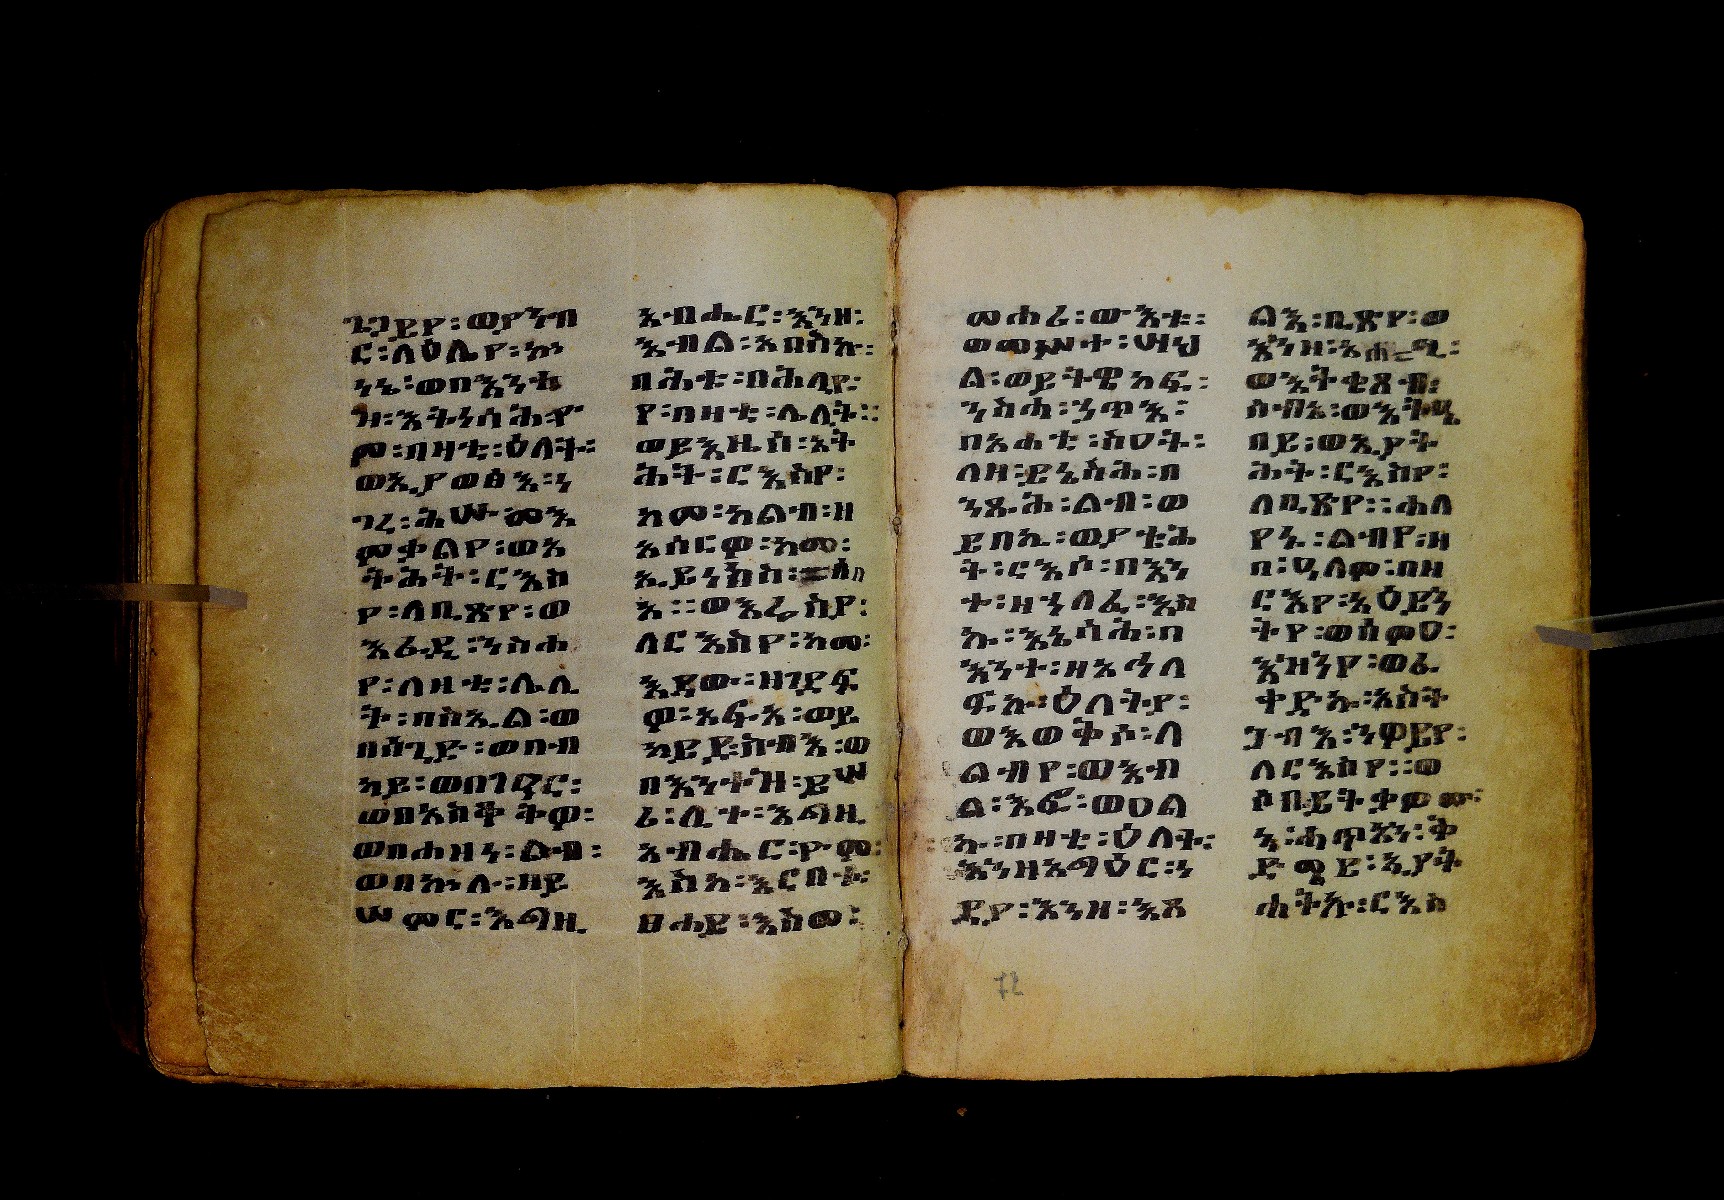 ጌጋይየ፡ወያንብ
ር፡ላዕሌየ፡ኵነ
ኔ፡ወበእንተ
ዝ፡እትነሳሕ፡ዮ
ም፡በዛቲ፡ዕለት፡
ወኢያወፅእ፡ነ
ገረ፡ሕሡመ፡እ
መቃልየ፡ወአ
ትሕት፡ርእስ
የ፡ለቢጽየ፡ወ
እፌጺ፡ንስሐ
የ፡ለዛቲ፡ሌሊ
ት፡በስኢል፡ወ
በሰጊድ፡ወበብ
ካይ፡ወበገዓር፡
ወበአስቆትዎ፡
ወበሐዘነ፡ልብ፡
ወበኵሉ፡ዘይ
ሠምር፡እግዚ
አብሔር፡እንዘ፡
እብል፡አበስኩ፡
በሕቱ፡በሕሊየ፡
የ፡በዛቲ፡ሌሊት፡፡
ወይእዜሰ፡አት
ሕት፡ርእስየ፡
ከመ፡ከልብ፡ዘ
አሰርዎ፡ከመ፡
ኢይነስክ፡
እ፡፡ወእሬስያ፡
ለርእስየ፡ከመ፡
እደው፡ዘገደፍ
ዎ፡አፍአ፡ወይ
ከይድ፡ሰብእ፡ወ
በእንተዝ፡ይሠ
ሪ፡ሊተ፡እግዚ
አብሔር፡ዮም፡
እስከ፡እርበተ፡
ፀሐይ፡እስመ፡
መሐሪ፡ውእቱ፡
ወመፍቀተ፡ሣህ
ል፡ወይትዌከፍ፡
ንስሐ፡ኃጥእ፡
በአሐቲ፡ሰዐት፡
ለዘ፡ይኔስሕ፡በ
ንጹሕ፡ልብ፡ወ
ይበኪ፡ወያቲሕ
ት፡ርእሶ፡በእን
ተ፡ዘኃለፈ፡እስ
ኩ፡እኔሳሕ፡በ
እንተ፡ዘአኃለ
ፍኩ፡ዕለትየ፡
ወእወቅሶ፡ለ
ልብየ፡ወእብ
ል፡እፎ፡ወዐል
ኩ፡በዛቲ፡ዕለት፡
እንዘእግዕር፡ነ
ድያ፡እንዘ፡እጸ
ልእ፡ቢጽየ፡ወ
እንዘ፡አሐሚ፡
ወእትቂጸብ፡
ሰብእ፡ወእትዔ
በይ፡ወኢያት
ሕት፡ርእስየ፡
ለቢጽየ፡፡ሐለ
የኒ፡ልብየ፡ዘ
በ፡ዓለም፡በዘ
ርእየ፡አዕይን
ትየ፡ወሰምዐ፡
እዝንየ፡ወፈ
ተድኩ፡አስት
ጋብእ፡ንዋይየ፡
ለርእስየ፡፡ወ
ሶበይትቃወሙ፡
ኒ፡ሐጥአን፡ቅ
ድሜይ፡ኢያት
ሐትኩ፡ርእስ
72